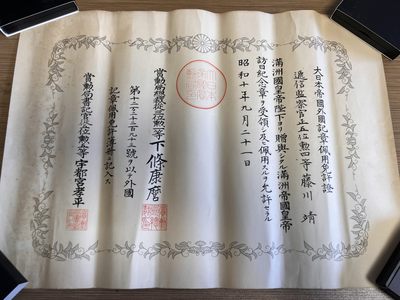 大日本帝國外國記章佩用免許證
遞信監察官正五位勲四等藤川靖
滿洲國皇帝陛下ヨリ贈與シタル滿洲帝國皇帝
訪日紀念章ヲ受領シ及ヒ佩用スルヲ允許セラル
昭和十年九月二十一日
賞勲局總裁從三位勲二等下條康麿
第十二万二千九十三號ヲ以テ外國
記章佩用免許簿册ニ記入ス
賞勲局書記官正五位勲五等宇都宮孝平